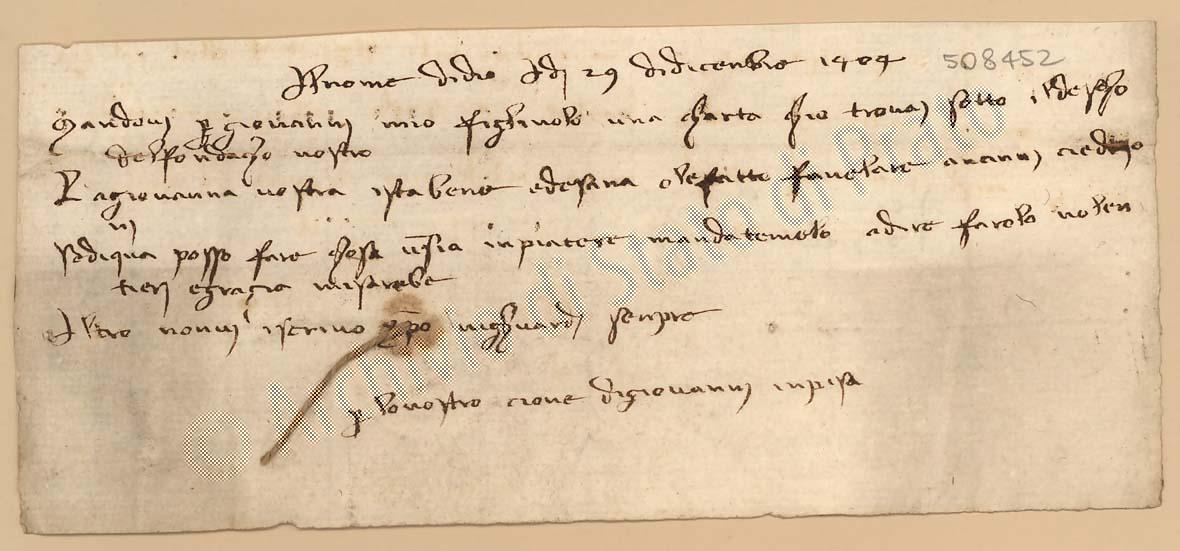 Al nome didio Adj 29 didicenbre 1404 508452
Mandovi p giovannj mio figlivolo una charta chio trovaj sotto il descho
del fondacho vostro
La giovanna vostra ista bene ede sana ole fatto favelare a
vi
se diqua posso fare chosa vi sia in piacere mandatemelo adire farolo volen
tierj e grazia misarebe
Altro nonvi iscrivo xpo vighuardj senpre
p lo vostro cione digiovannj inpisa
© Archivio di Stato di Prato